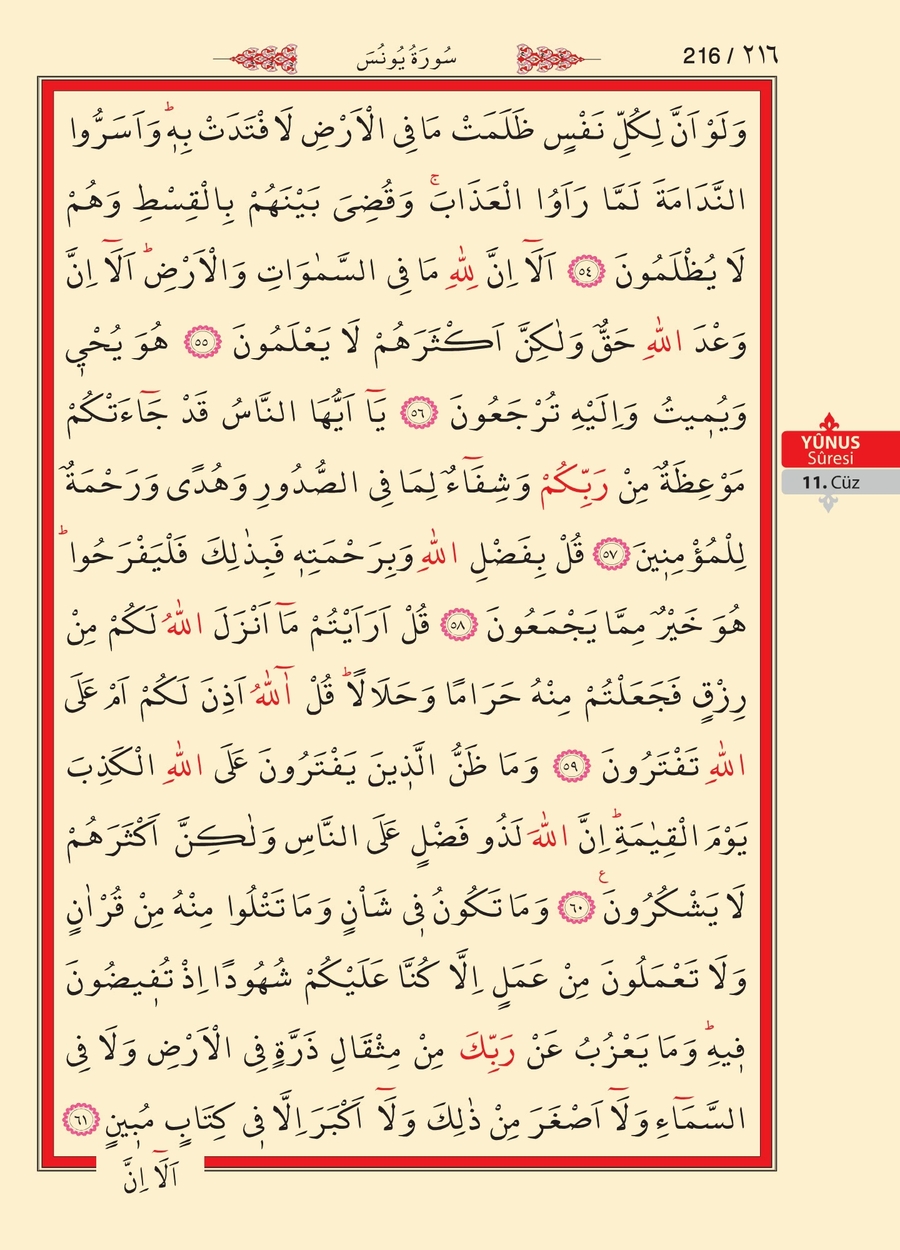 سُورَةُ يُونُسَ
216 / ٢١٦
وَلَوْ اَنَّ لِكُلِّ نَفْسٍ ظَلَمَتْ مَا فِى الْاَرْضِ لَافْتَدَتْ بِهٖۜ وَاَسَرُّوا
النَّدَامَةَ لَمَّا رَاَوُا الْعَذَابَۚ وَقُضِىَ بَيْنَهُمْ بِالْقِسْطِ وَهُمْ
لَا يُظْلَمُونَ ﴿٥٤﴾ اَلَٓا اِنَّ لِلّٰهِ مَا فِى السَّمٰوَاتِ وَالْاَرْضِۜ اَلَٓا اِنَّ
وَعْدَ اللّٰهِ حَقٌّ وَلٰكِنَّ اَكْثَرَهُمْ لَا يَعْلَمُونَ ﴿٥٥﴾ هُوَ يُحْيٖ
وَيُمٖيتُ وَاِلَيْهِ تُرْجَعُونَ ﴿٥٦﴾ يَٓا اَيُّهَا النَّاسُ قَدْ جَٓاءَتْكُمْ
مَوْعِظَةٌ مِنْ رَبِّكُمْ وَشِفَٓاءٌ لِمَا فِى الصُّدُورِ وَهُدًى وَرَحْمَةٌ
لِلْمُؤْمِنٖينَ ﴿٥٧﴾ قُلْ بِفَضْلِ اللّٰهِ وَبِرَحْمَتِهٖ فَبِذٰلِكَ فَلْيَفْرَحُواۜ
هُوَ خَيْرٌ مِمَّا يَجْمَعُونَ ﴿٥٨﴾ قُلْ اَرَاَيْتُمْ مَٓا اَنْزَلَ اللّٰهُ لَكُمْ مِنْ
رِزْقٍ فَجَعَلْتُمْ مِنْهُ حَرَامًا وَحَلَالًاۜ قُلْ آٰللّٰهُ اَذِنَ لَكُمْ اَمْ عَلَى
اللّٰهِ تَفْتَرُونَ ﴿٥٩﴾ وَمَا ظَنُّ الَّذٖينَ يَفْتَرُونَ عَلَى اللّٰهِ الْكَذِبَ
يَوْمَ الْقِيٰمَةِۜ اِنَّ اللّٰهَ لَذُو فَضْلٍ عَلَى النَّاسِ وَلٰكِنَّ اَكْثَرَهُمْ
لَا يَشْكُرُونَ ࣖ ﴿٦٠﴾ وَمَا تَكُونُ فٖى شَاْنٍ وَمَا تَتْلُوا مِنْهُ مِنْ قُرْاٰنٍ
وَلَا تَعْمَلُونَ مِنْ عَمَلٍ اِلَّا كُنَّا عَلَيْكُمْ شُهُودًا اِذْ تُفٖيضُونَ
فٖيهِۜ وَمَا يَعْزُبُ عَنْ رَبِّكَ مِنْ مِثْقَالِ ذَرَّةٍ فِى الْاَرْضِ وَلَا فِى
السَّمَٓاءِ وَلَٓا اَصْغَرَ مِنْ ذٰلِكَ وَلَٓا اَكْبَرَ اِلَّا فٖى كِتَابٍ مُبٖينٍ ﴿٦١﴾
اَلَٓا اِنَّ
YÛNUS
Sûresi
11. Cüz